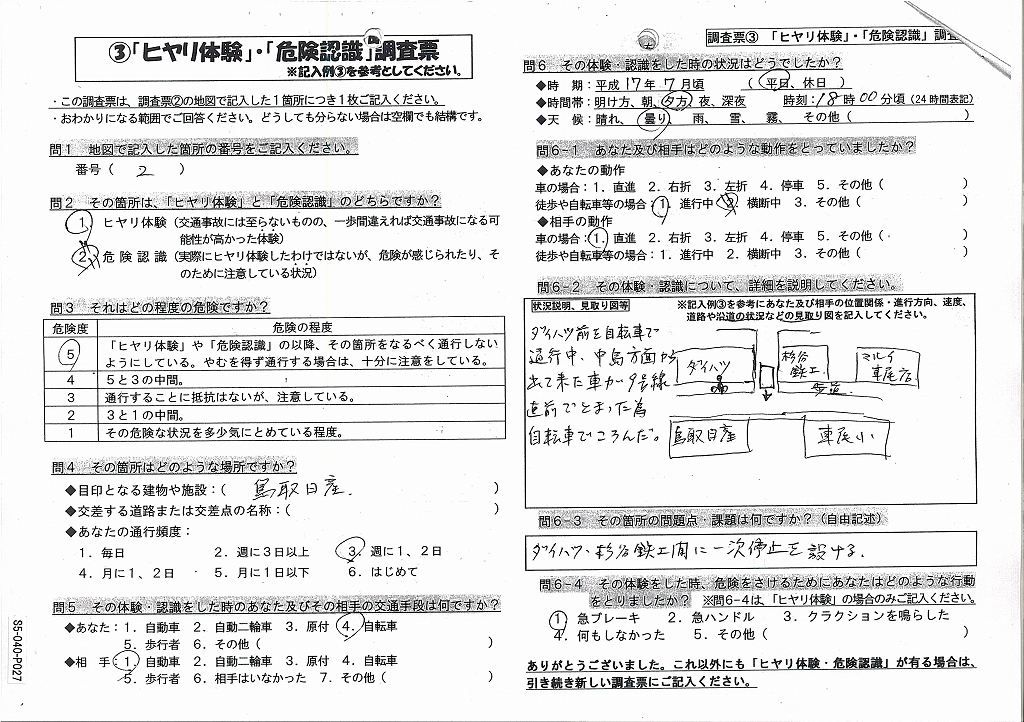 ③「ヒヤリ体験」・「危険認識」調査票
※記入例③を参考としてください。
・この調査票は、調査票②の地図で記入した1箇所につき1枚ご記入ください。
・おわかりになる範囲でご回答ください。どうしても分らない場合は空欄でも結構です。
問1 地図で記入した箇所の番号をご記入ください。
番号( 2 )
問2 その箇所は、「ヒヤリ体験」と「危険認識」のどちらですか?
1. ヒヤリ体験(交通事故には至らないものの、一歩間違えれば交通事故になる可
能性が高かった体験)
2. 危険認識(実際にヒヤリ体験したわけではないが、危険が感じられたり、そ
のために注意している状況)
問3 それはどの程度の危険ですか?
危険度 危険の程度
5 「ヒヤリ体験」や「危険認識」の以降、その箇所をなるべく通行しない
ようにしている。やむを得ず通行する場合は、十分に注意をしている。
4 5と3の中間。
3 通行することに抵抗はないが、注意している。
2 3と1の中間。
1 その危険な状況を多少気にとめている程度。
問4 その箇所はどのような場所ですか?
◆目印となる建物や施設:( 鳥取日産. )
◆交差する道路または交差点の名称:( )
◆あなたの通行頻度:
1.毎日 2.週に3日以上 3.週に1、2日
4.月に1、2日 5.月に1日以下 6.はじめて
問5 その体験・認識をした時のあなた及びその相手の交通手段は何ですか?
◆あなた:1.自動車 2.自動二輪車 3.原付 4.自転車
5.歩行者 6.その他( )
◆相 手:1.自動車 2.自動二輪車 3.原付 4.自転車
5.歩行者 6.相手はいなかった 7.その他( )
SS-040-P027
調査票③ 「ヒヤリ体験」・「危険認識」調査
問6 その体験・認識をした時の状況はどうでしたか?
◆時 期:平成17年7月頃 (平日、休日 )
◆時間帯:明け方、朝、夕方、夜、深夜 時刻:18時00分頃(24時間表記)
◆天 候:晴れ、曇り、 雨、 雪、 霧、 その他( )
問6-1 あなた及び相手はどのような動作をとっていましたか?
◆あなたの動作
車の場合:1.直進 2.右折 3.左折 4.停車 5.その他( )
徒歩や自転車等の場合:1.進行中 2.横断中 3.その他( )
◆相手の動作
車の場合:1.直進 2.右折 3.左折 4.停車 5.その他( )
徒歩や自転車等の場合:1.進行中 2.横断中 3.その他( )
問6-2 その体験・認識について、詳細を説明してください。
状況説明、見取り図等 ※記入例③を参考にあなた及び相手の位置関係・進行方向、速度、
道路や沿道の状況などの見取り図を記入してください。
ダイハツ前を自転車で
通行中、中島方面から
出て来た車が9号線
直前でとまった為
自転車でころんだ。
ダイハツ
杉谷
鉄工.
マルイ
車尾店
歩道
鳥取日産
車尾小
問6-3 その箇所の問題点・課題は何ですか?(自由記述)
ダイハツ・杉谷鉄工間に一次停止を設ける.
問6-4 その体験をした時、危険をさけるためにあなたはどのような行動
をとりましたか? ※問6-4は、「ヒヤリ体験」の場合のみご記入ください。
1.急ブレーキ 2.急ハンドル 3.クラクションを鳴らした
4.何もしなかった 5.その他( )
ありがとうございました。これ以外にも「ヒヤリ体験・危険認識」が有る場合は、
引き続き新しい調査票にご記入ください。